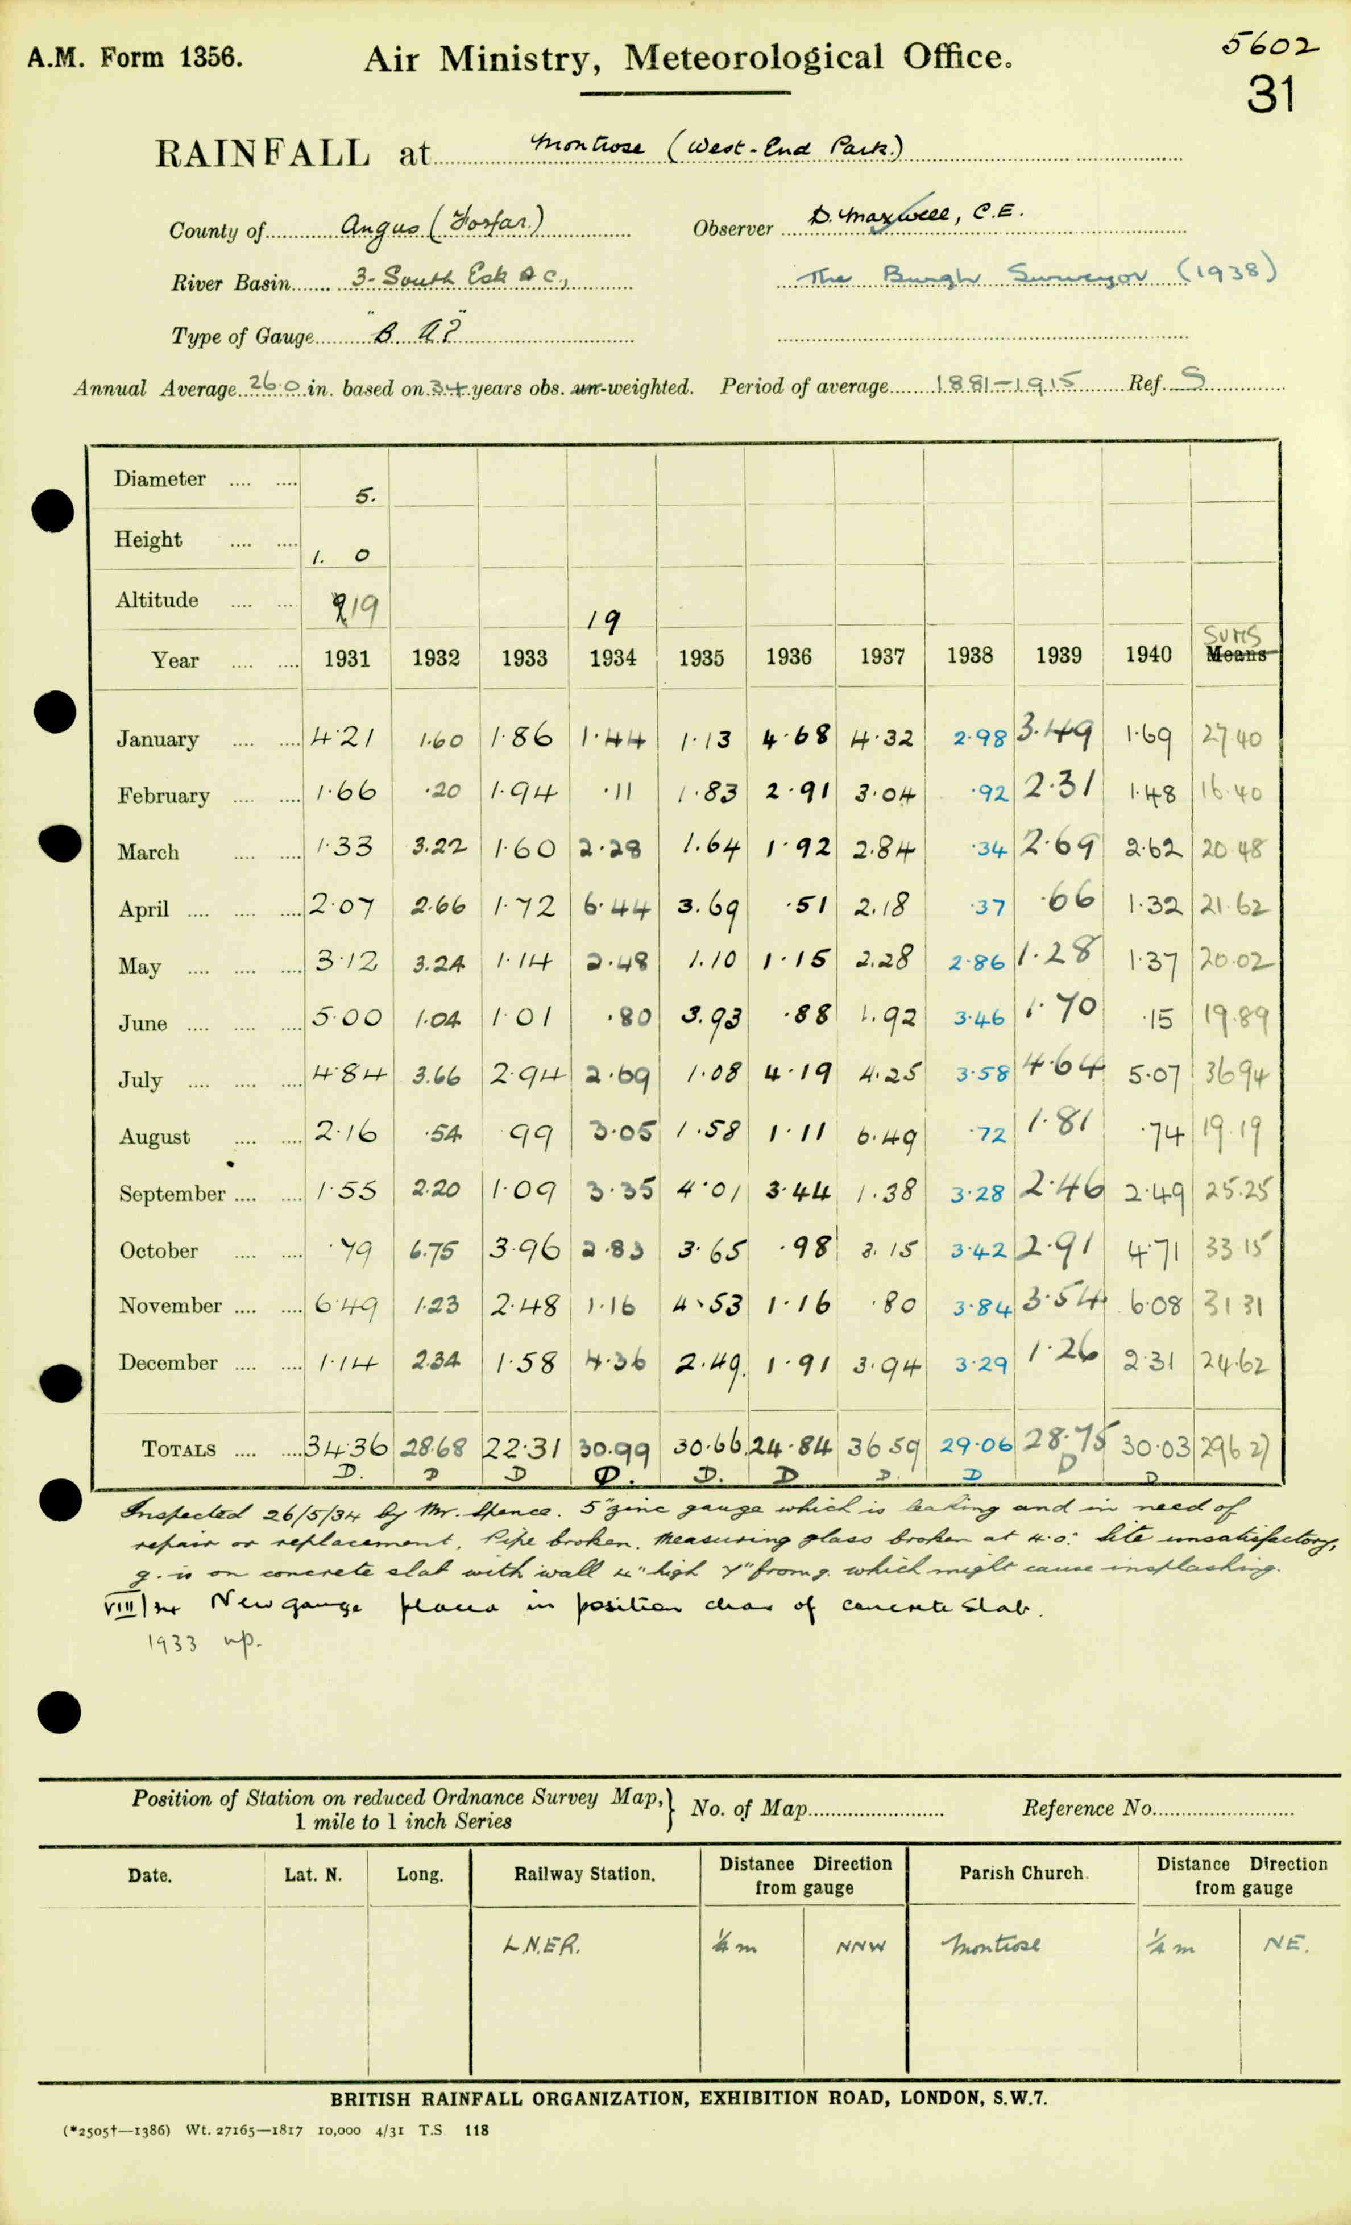 A.M. Form 1356. Air Ministry, Meteorological Office. 5602
31
RAINFALL at Montrose (West-End Park.)
County of Angus (Forfar.) Observer D. Maxwell, C.E.
River Basin 3-South Esk &c., The Burgh Surveyor (1938)
Type of Gauge "B. A?"
Annual Average 26.0 in. based on 34 years obs. un-weighted. Period of average 1881-1915 Ref. S
Diameter 5.
Height 1. 0
Altitude 19 19
Year 1931 1932 1933 1934 1935 1936 1937 1938 1939 1940 SUMS Means
January 4.21 1.60 1.86 1.44 1.13 4.68 4.32 2.98 3.49 1.69 27 40
February 1.66 .20 1.94 .11 1.83 2.91 3.04 .92 2.31 1.48 16.40
March 1.33 3.22 1.60 2.28 1.64 1.92 2.84 .34 2.69 2.62 20 48
April 2.07 2.66 1.72 6.44 3.69 .51 2.18 .37 .66 1.32 21.62
May 3.12 3.24 1.14 2.48 1.10 1.15 2.28 2.86 1.28 1.37 20.02
June 5.00 1.04 1.01 .80 3.93 .88 1.92 3.46 1.70 .15 19.89
July 4.84 3.66 2.94 2.69 1.08 4.19 4.25 3.58 4.64 5.07 36 94
August 2.16 .54 .99 3.05 1.58 1.11 6.49 .72 1.81 .74 19.19
September 1.55 2.20 1.09 3.35 4.01 3.44 1.38 3.28 2.46 2.49 25.25
October .79 6.75 3.96 2.83 3.65 .98 3.15 3.42 2.91 4.71 33 15
November 6.49 1.23 2.48 1.16 4.53 1.16 .80 3.84 3.54 6.08 31 31
December 1.14 2.34 1.58 4.36 2.49. 1.91 3.94 3.29 1.26 2.31 24.62
TOTALS 34.36 28.68 22.31 30.99 30.66 24.84 36 59 29.06 28.75 30.03 296 27
D. D D D. D. D D. D D D
Inspected 26/5/34 by Mr. Spence. 5" zinc gauge which is leaking and in need of
repair or replacement. Pipe broken. Measuring glass broken at 4.0. Site unsatisfactory,
g. is on concrete slab with wall 4" high 7" from g. which might cause insplashing.
VIII/34 New gauge placed in position clear of concrete slab.
1933 up.
Position of Station on reduced Ordnance Survey Map, 1 mile to 1 inch Series } No. of Map Reference No.
Date. Lat. N. Long. Railway Station. Distance Direction from gauge Parish Church. Distance Direction from gauge
L.N.E.R. ¼ m NNW Montrose ¼ m NE.
BRITISH RAINFALL ORGANIZATION, EXHIBITION ROAD, LONDON, S.W.7.
(*2505†—1386) Wt. 27165—1817 10,000 4/31 T.S 118